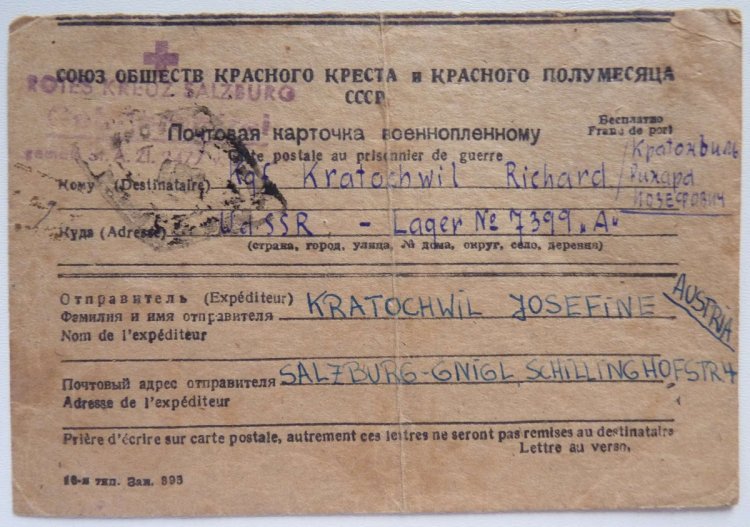 СОЮЗ ОБЩЕСТВ КРАСНОГО КРЕСТА и КРАСНОГО ПОЛУМЕСЯЦА
СССР
ROTES KREUZ SALZBURG
Почтовая карточка военнопленному
Бесплатно
Franc de port
Carte postale au prisonnier de guerre
Кому (Destinataire) Kgf. Kratochwil Richard
Кратохвиль
Рихард
Иозефович
Куда (Adresse) UdSSR - Lager № 7399 "A"
(страна, город, улица, № дома, округ, село, деревня)
Отправитель (Expéditeur)
Фамилия и имя отправителя KRATOCHWIL JOSEFINE
AUSTRIA
Nom de l'expéditeur
Почтовый адрес отправителя SALZBURG-GNIGL, SCHILLINGHOFSTR 4
Adresse de l'expéditeur
Prière d'écrire sur carte postale, autrement ces lettres ne seront pas remises au destinataire
Lettre au verso.
16-я тип. Зак. 893